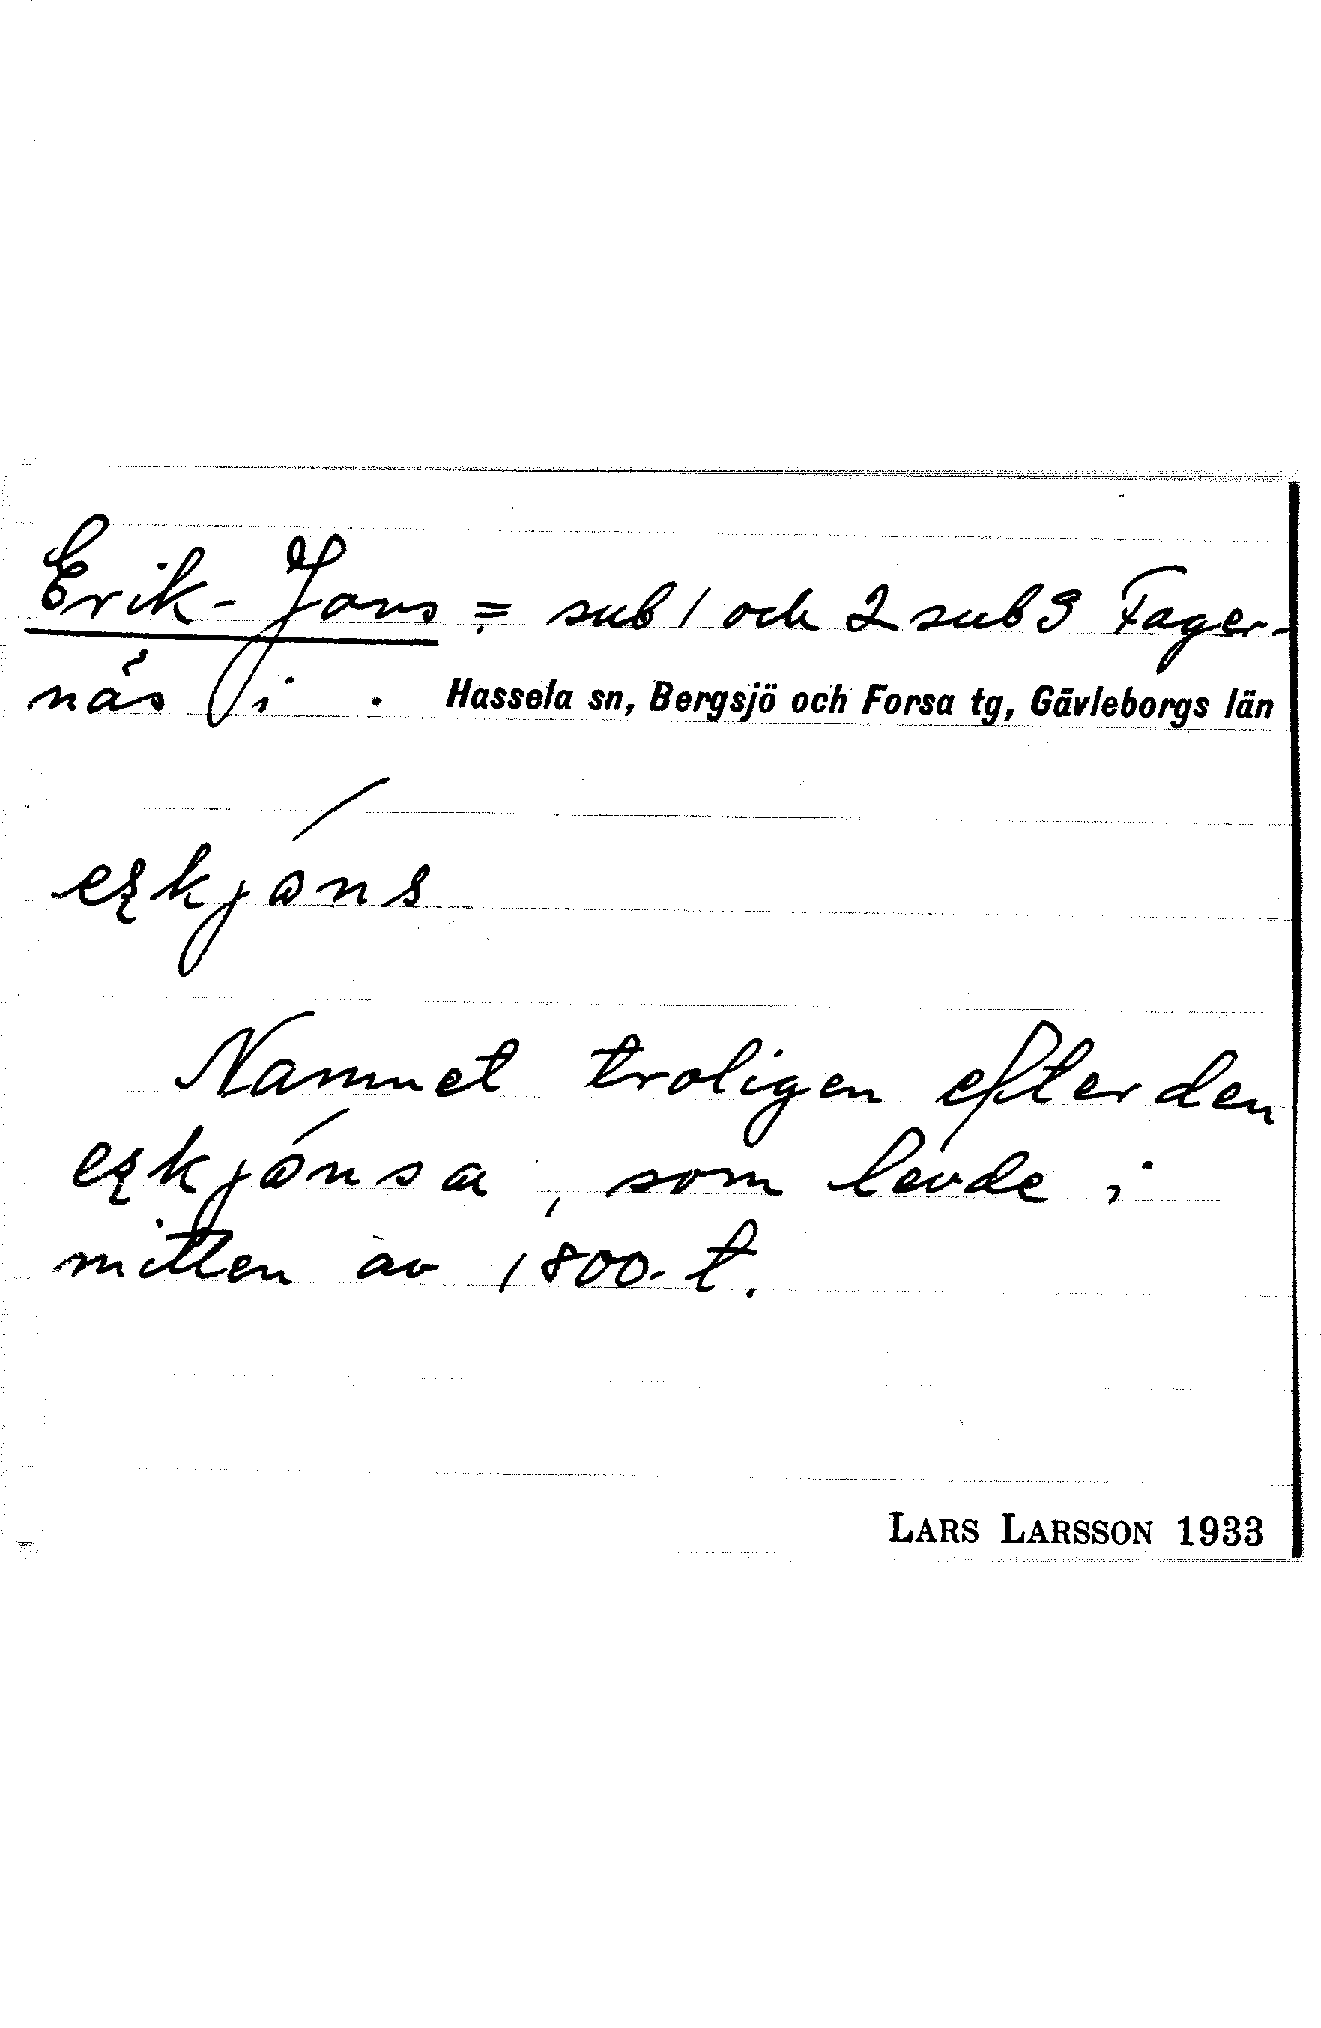 Erik-Jons = sub 1 och 2 sub 3 Fager-
näs i . Hassela sn, Bergsjö och Forsa tg, Gävleborgs län
Namnet troligen efter den
, som levde i
mitten av 1800-t.
LARS LARSSON 1933